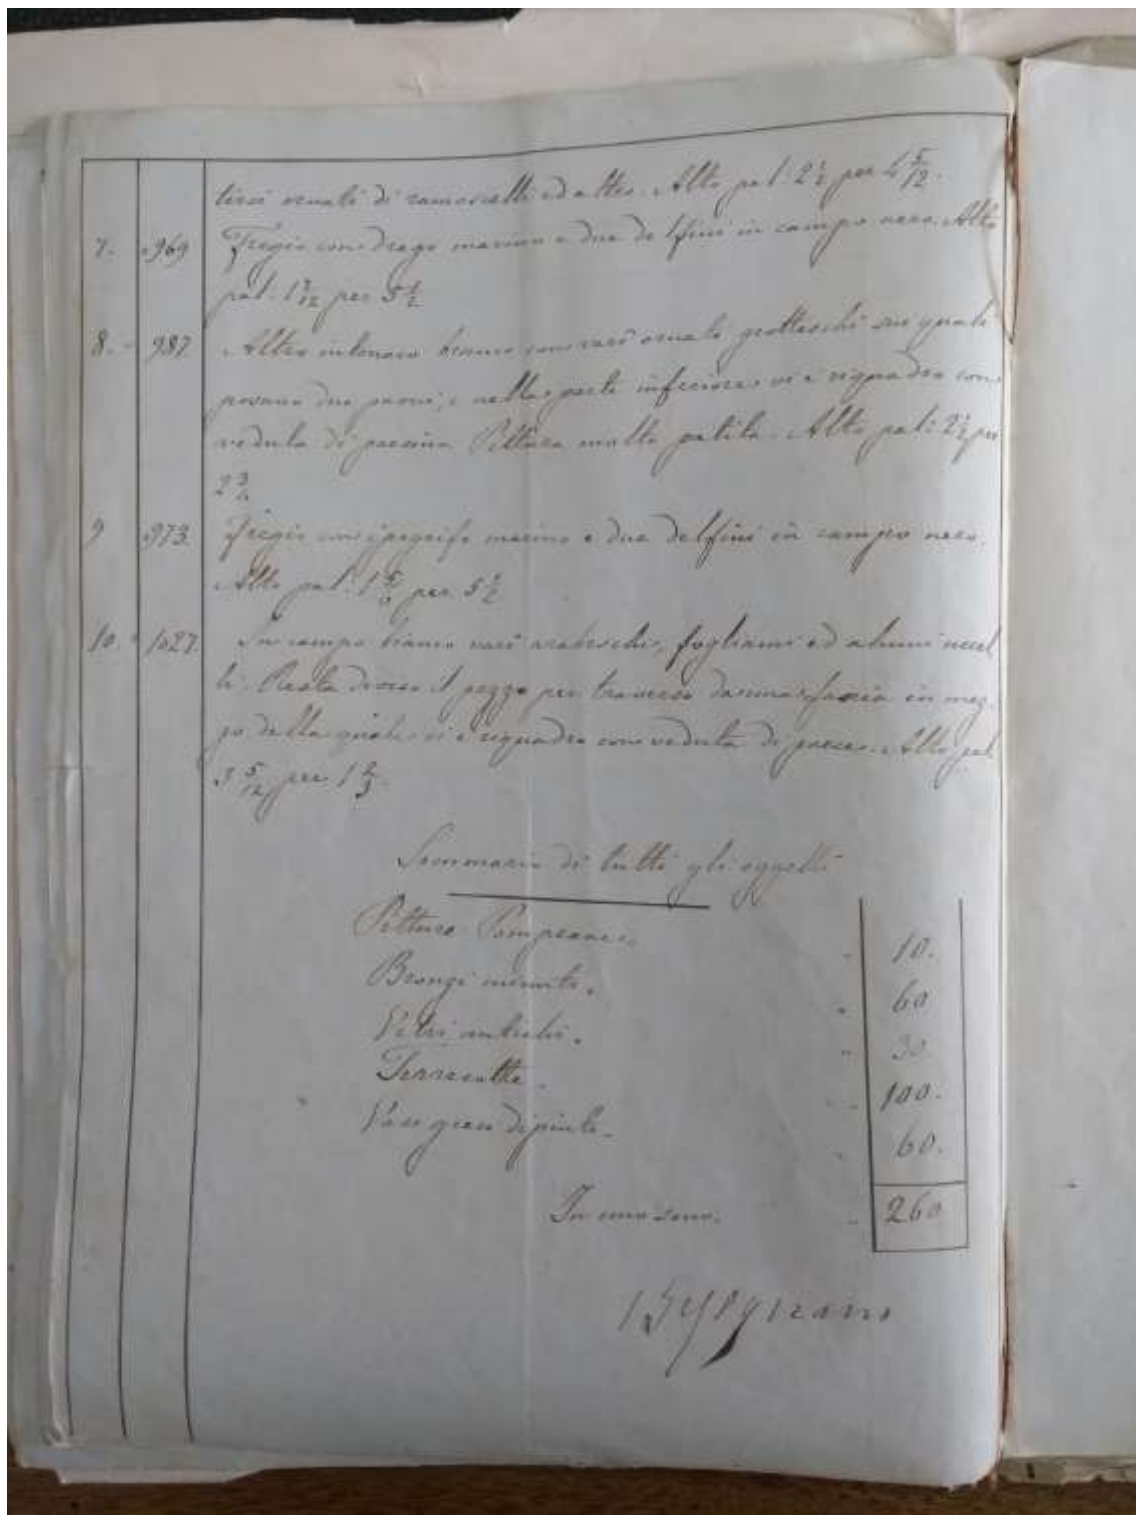 tirsi ornati di ramoscelli ed altro. Alto pal: 2 1/2 per 4 5/12.
7. 969 Fregio con drago marino e due delfini in campo nero. Alto
pal: 1 5/12 per 5 1/2
8. 987. Altro intonaco bianco con varî ornati grotteschi sui quali
posano due pavoni, e nella parte inferiore vi è riquadro con
veduta di paesino. Pittura molto patita. Alto pal: 2 1/2 per
2 3/4
9 973. Fregio con ipogrifo marino e due delfini in campo nero.
Alto pal: 1 per 5 1/2
10. 1027. In campo bianco varî arabeschi, fogliami ed alcuni uccel
li. Resta diviso il pezzo per traverso da una fascia in mez
zo della quale vi è riquadro con veduta di paese. Alto pal
3 5/12 per 1 2/3.
Sommario di tutti gli oggetti
Pitture Pompeane. 10.
Bronzi minuti. 60
Vetri antichi. 30.
Terrecotte. 100.
Vasi greci dipinti. 60.
In uno sono. 260